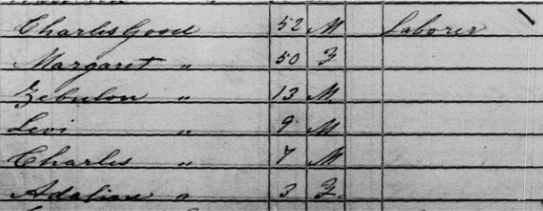 Charles Good 52 M Laborer
Margaret " 50 F
Zebulon " 13 M
Levi " 9 M
Charles " 7 M
" 3 F